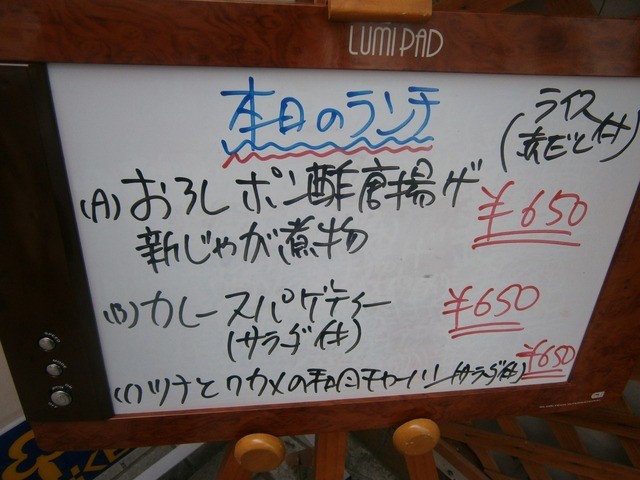 LUMIPAD
本日のランチ
ライス
(赤だし付)
(A)おろしポン酢唐揚げ
新じゃが煮物
¥650
(B)カレースパゲティー
(サラダ付)
¥650
(C)ツナとワカメの和風チャーハン(サラダ付)
¥650